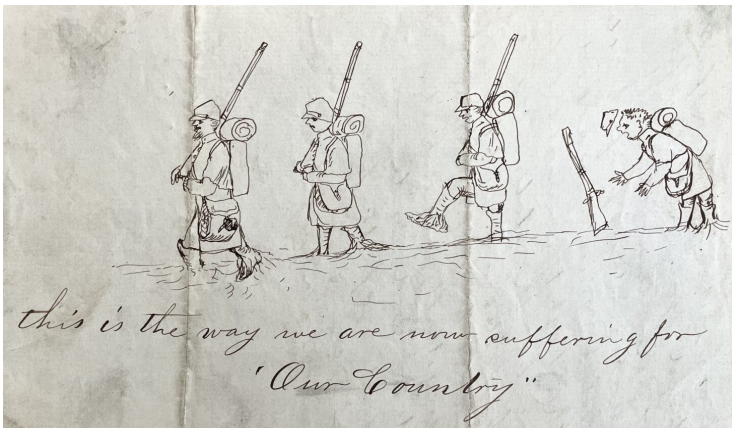 this is the way we are now suffering for
'Our Country"